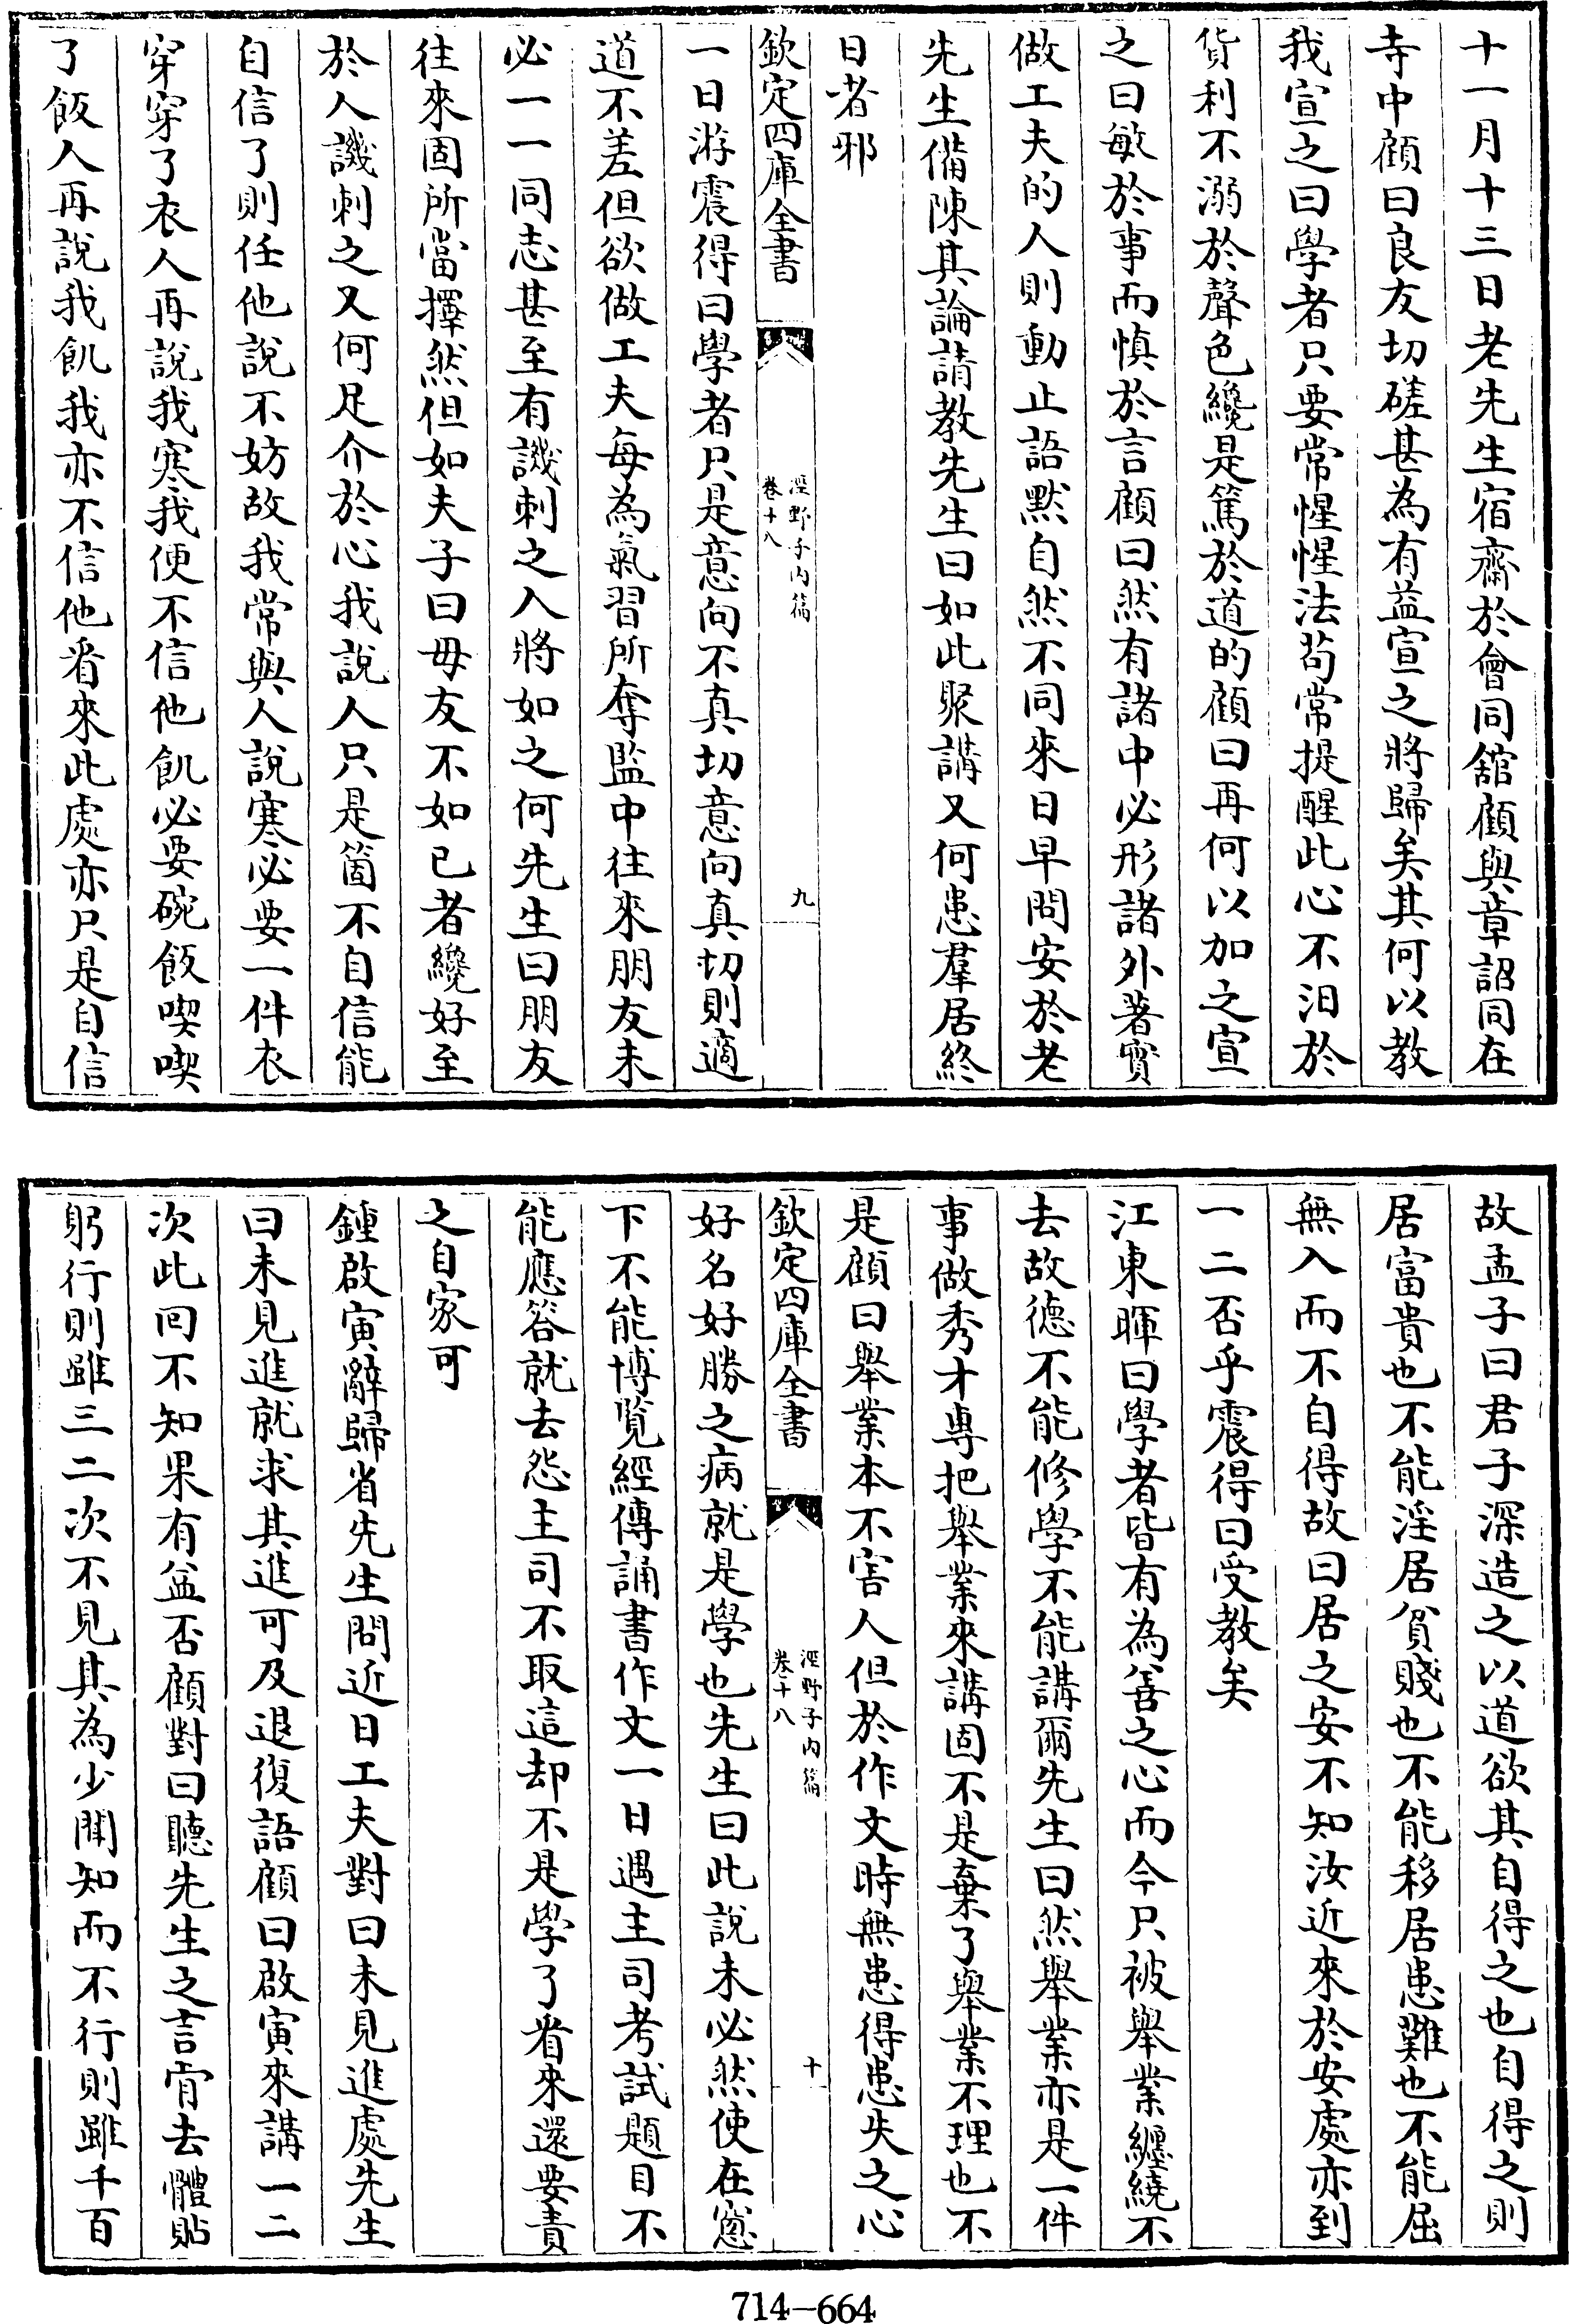 十一月十三日老先生宿齋於會同舘顧與章詔同在
寺中顧曰良友切磋甚為有益宣之將歸矣其何以教
我宣之曰學者只要常惺惺法茍常提醒此心不汨於
貨利不溺於聲色纔是篤於道的顧曰再何以加之宣
之曰敏於事而慎於言顧曰然有諸中必形諸外著實
做工夫的人則動止語默自然不同來日早問安於老
先生備陳其論請教先生曰如此聚講又何患羣居終
日者邪
欽定四庫全書
涇野子內篇
卷十八
九
一日游震得曰學者只是意向不真切意向真切則適
道不差但欲做工夫每為氣習所奪監中往來朋友未
必一一同志甚至有譏刺之入將如之何先生曰朋友
往來固所當擇然但如夫子曰毋友不如已者纔好至
於人譏刺之又何足介於心我說人只是箇不自信能
自信了則任他說不妨故我常與人說寒必要一件衣
穿穿了衣人再說我寒我便不信他飢必要碗飯喫喫
了飯人再說我飢我亦不信他看來此處亦只是自信
故孟子曰君子深造之以道欲其自得之也自得之則
居富貴也不能淫居貧賤也不能移居患難也不能屈
無入而不自得故曰居之安不知汝近來於安處亦到
一二否乎震得曰受教矣
江東暉曰學者皆有為善之心而今只被舉業纏繞不
去故德不能修學不能講爾先生曰然舉業亦是一件
事做秀才專把舉業來講固不是棄了舉業不理也不
是顧曰舉業本不害人但於作文時無患得患失之心
欽定四庫全書
涇野子內篇
卷十八
十
好名好勝之病就是學也先生曰此說未必然使在窻
下不能博覽經傳誦書作文一日遇主司考試題目不
能應答就去怨主司不取這却不是學了看來還要責
之自家可
鍾啟寅辭歸省先生問近日工夫對曰未見進處先生
曰未見進就求其進可及退復語顧曰啟寅來講一二
次此回不知果有益否顧對曰聽先生之言肯去體貼
躬行則雖三二次不見其為少聞知而不行則雖千百
714—664